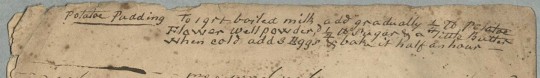 Potatoe Pudding To 1 qrt boiled milk add gradually ½ lb Potatoe
Flower well powder,d ½ lb Sugar & a little Butter
when cold add 8 Eggs & bake it half an hour